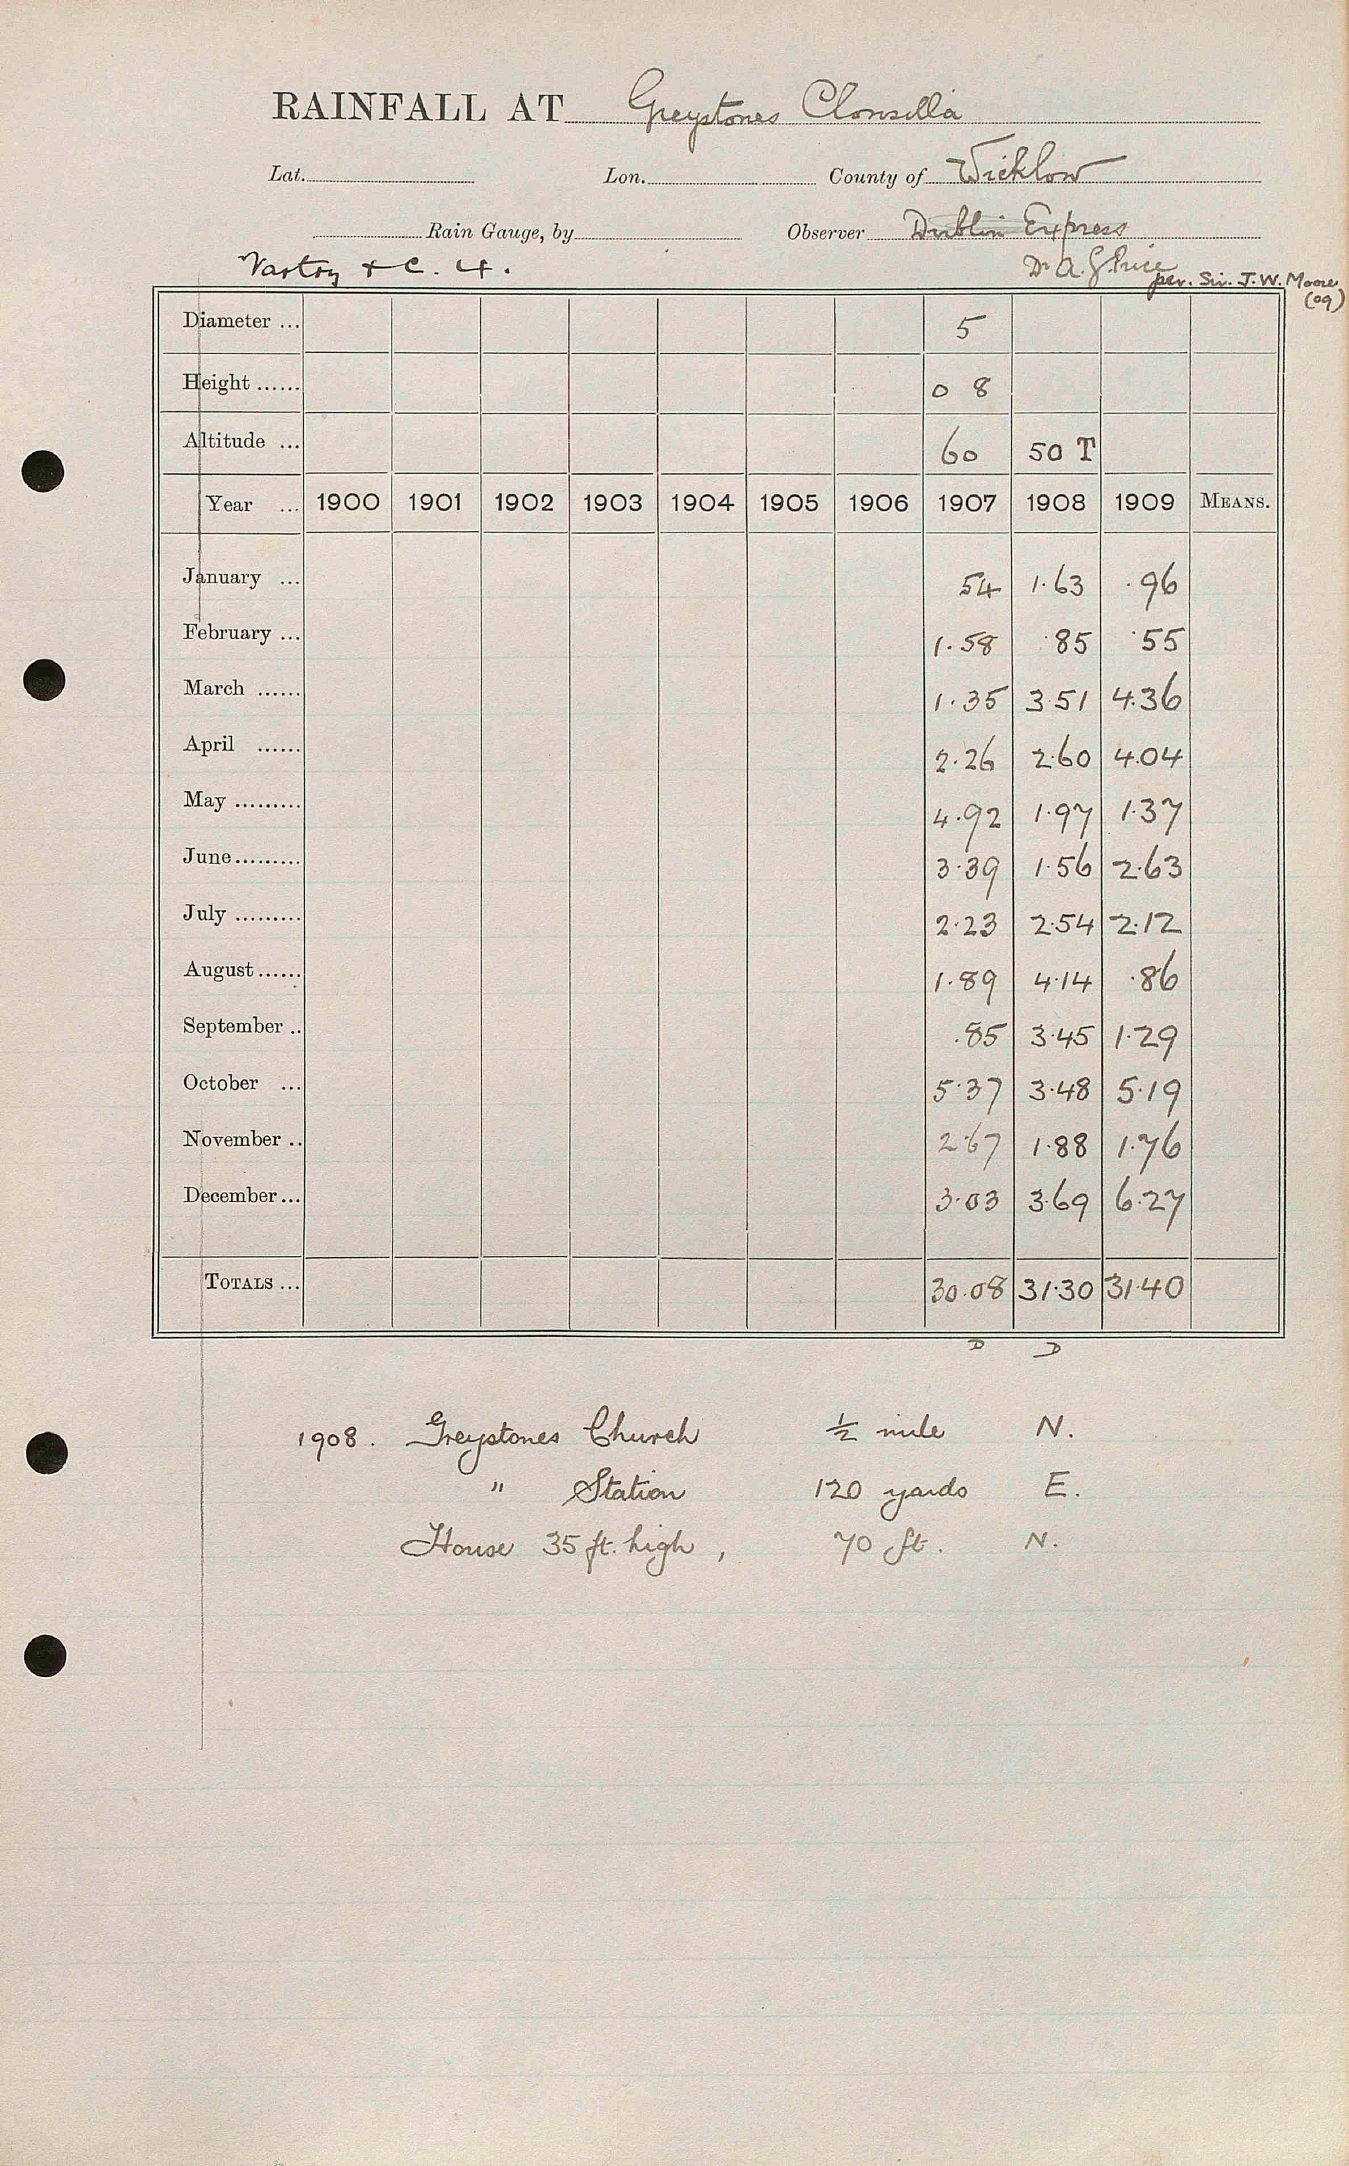 RAINFALL AT Greystones Clonsilla
Lat. Lon. County of Wicklow
Rain Gauge, by Observer Dublin Express
Vartry & C. 4. Dr A. G. Price
per. Sir. J. W. Moore
(09)
Diameter ... 5
Height ...... 0 8
Altitude ... 60 50 T
Year ... 1900 1901 1902 1903 1904 1905 1906 1907 1908 1909 MEANS.
January ... 54 1.63 .96
February ... 1.58 .85 .55
March ...... 1.35 3.51 4.36
April ...... 2.26 2.60 4.04
May ......... 4.92 1.97 1.37
June ......... 3.39 1.56 2.63
July ......... 2.23 2.54 2.12
August ...... 1.89 4.14 .86
September .. .85 3.45 1.29
October ... 5.37 3.48 5.19
November .. 2.67 1.88 1.76
December ... 3.03 3.69 6.27
TOTALS ... 30.08 31.30 31.40
D D
1908. Greystones Church ½ mile N.
" Station 120 yards E.
House 35 ft. high, 70 ft. N.